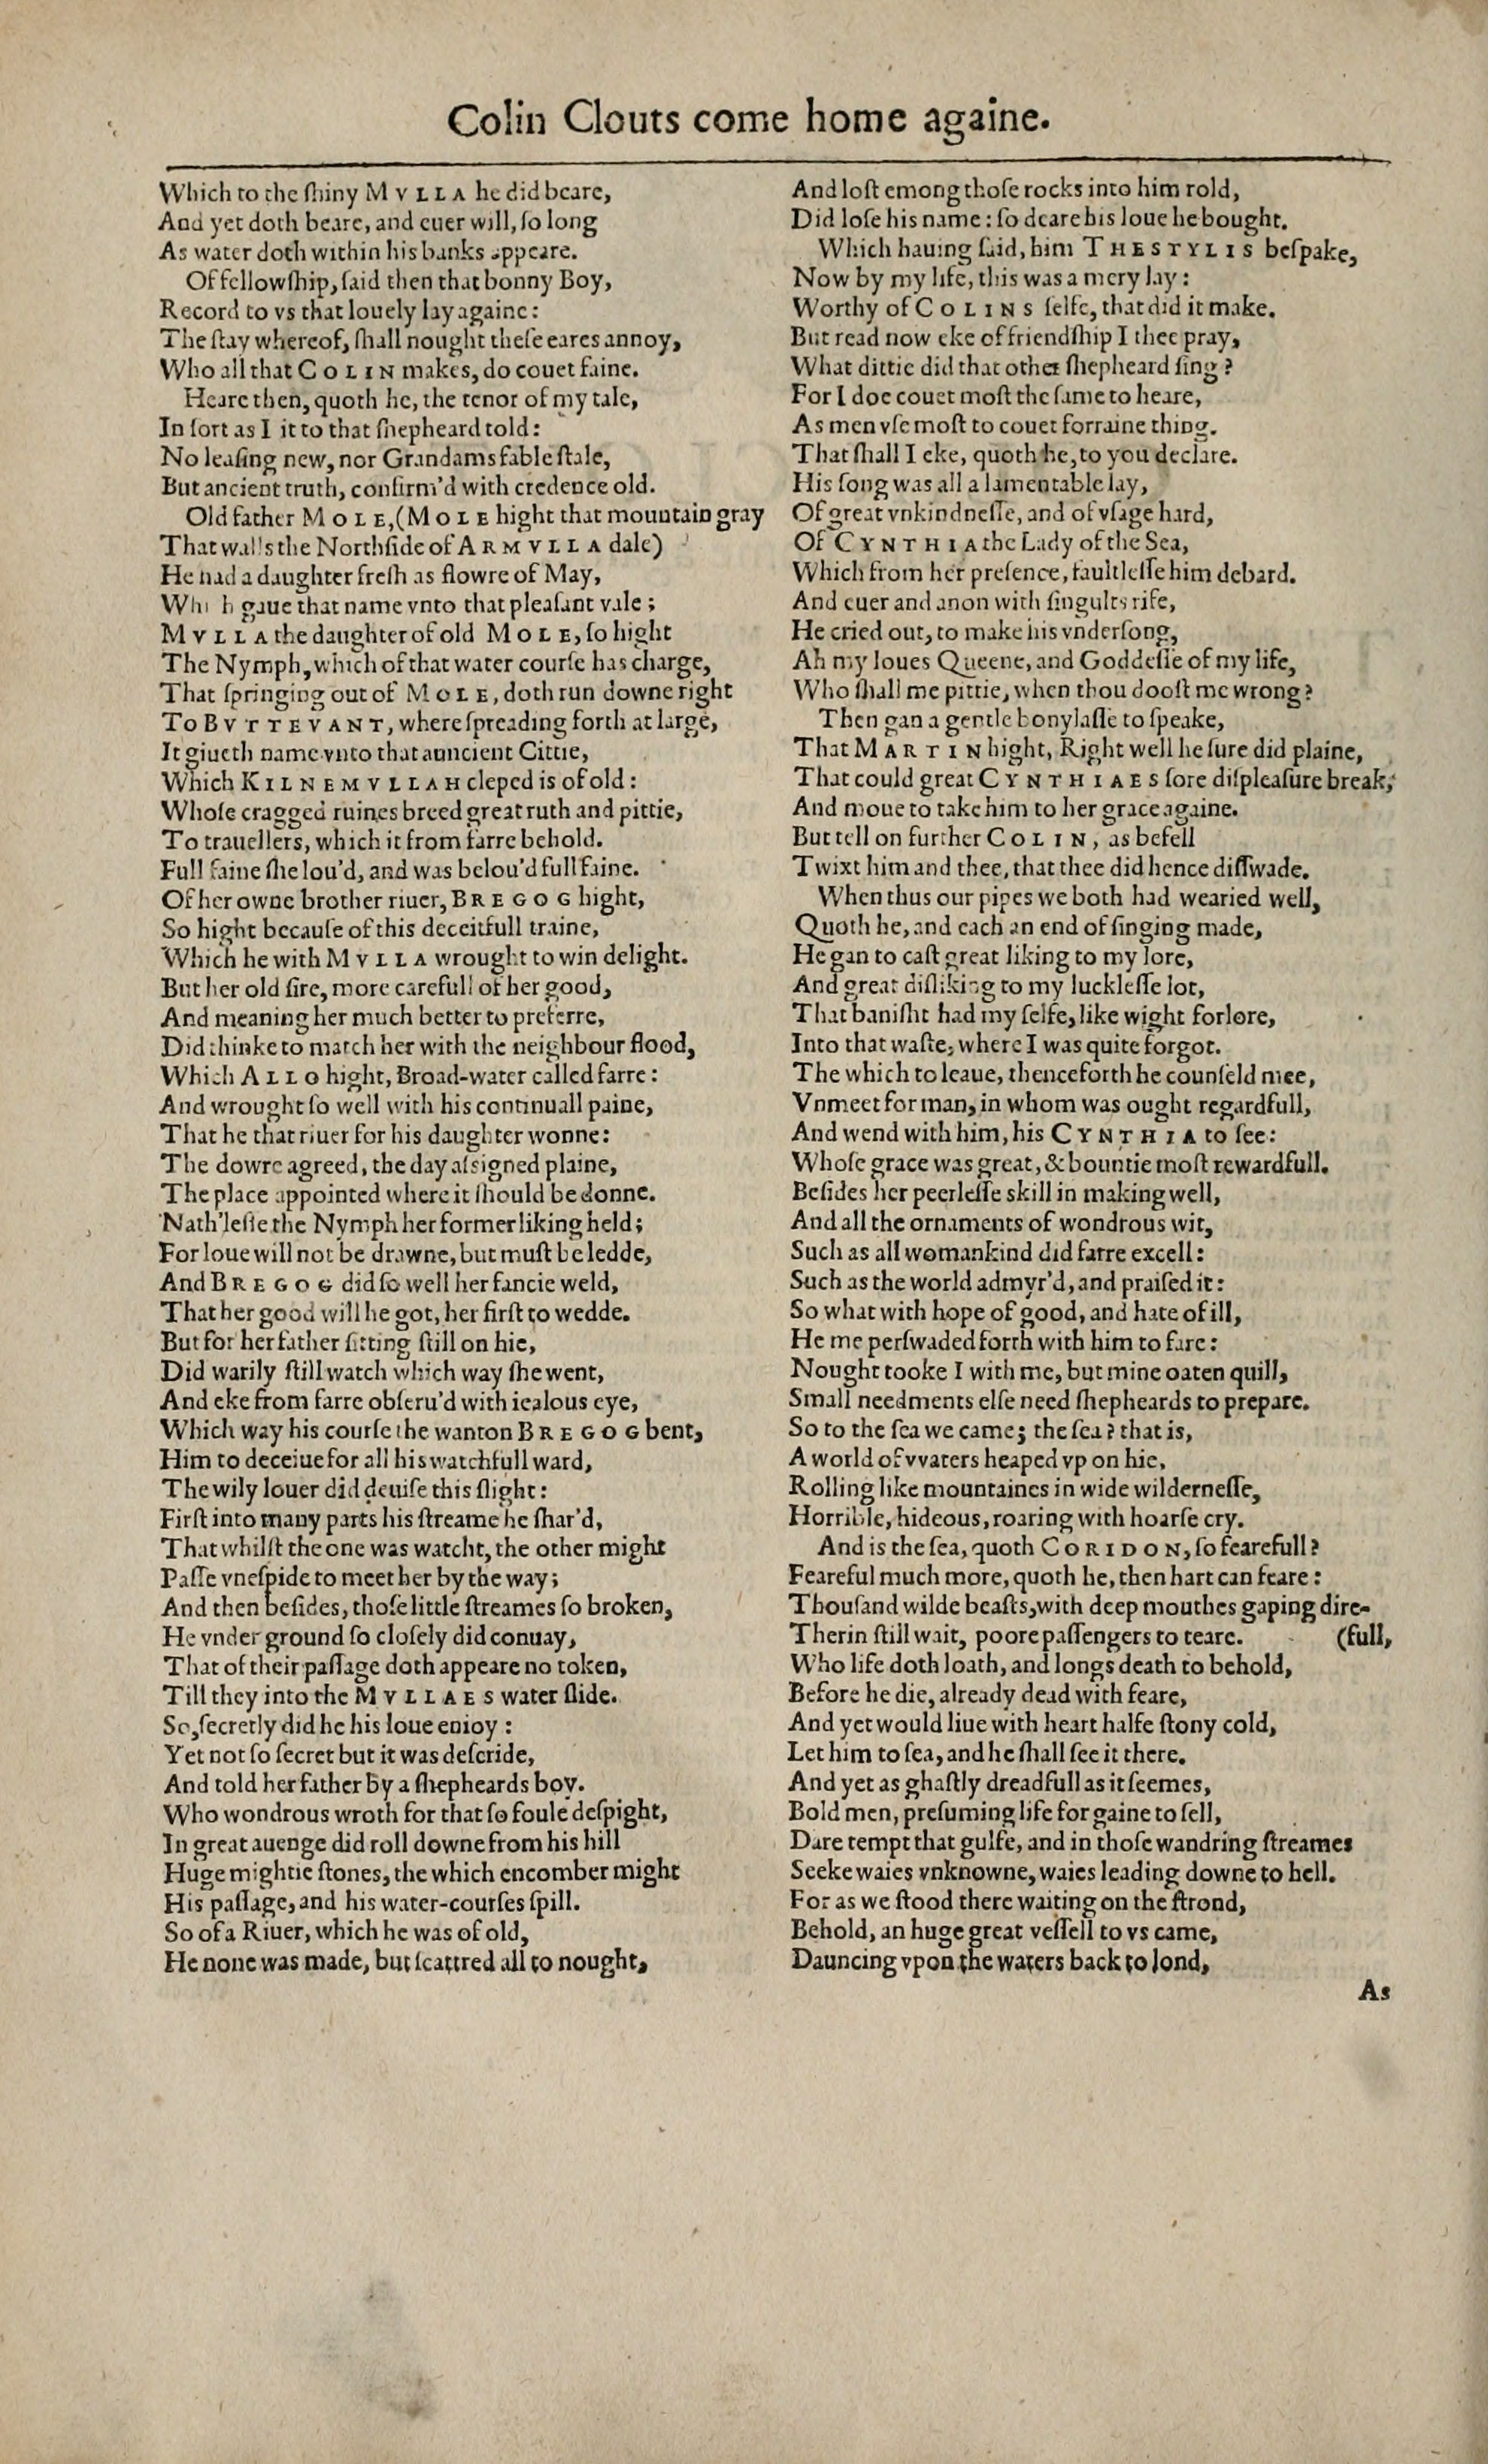 Colin Clouts come home againe.
Which to the ſhiny MVLLA he did beare,
And yet doth beare, and euer will, ſo long
As water doth within his banks appeare.
Of fellowſhip, ſaid then that bonny Boy,
Record to vs that louely lay againe:
The ſtay whereof, ſhall nought theſe eares annoy,
Who all that COLIN makes, do couet faine.
Heare then, quoth he, the tenor of my tale,
In ſort as I it to that ſhepheard told:
No leaſing new, nor Grandams fable ſtale,
But ancient truth, confirm'd with credence old.
Old father MOLE, (MOLE hight that mountain gray
That walls the Northſide of ARMVLLA dale)
He had a daughter freſh as flowre of May,
Which gaue that name vnto that pleaſant vale;
MVLLA the daughter of old MOLE, ſo hight
The Nymph, which of that water courſe has charge,
That ſpringing out of MOLE, doth run downe right
To BVTTEVANT, where ſpreading forth at large,
It giueth name vnto that auncient Cittie,
Which KILNEMVLLAH cleped is of old:
Whoſe cragged ruines breed great ruth and pittie,
To trauellers, which it from farre behold.
Full faine ſhe lou'd, and was belou'd full faine.
Of her owne brother riuer, BREGOG hight,
So hight becauſe of this deceitfull traine,
Which he with MVLLA wrought to win delight.
But her old ſire, more carefull of her good,
And meaning her much better to preferre,
Did thinke to match her with the neighbour flood,
Which ALLO hight, Broad-water called farre:
And wrought ſo well with his continuall paine,
That he that riuer for his daughter wonne:
The dowre agreed, the day aſsigned plaine,
The place appointed where it ſhould be donne.
Nath'leſſe the Nymph her former liking held;
For loue will not be drawne, but muſt be ledde,
And BREGOG did ſo well her fancie weld,
That her good will he got, her firſt to wedde.
But for her father ſitting ſtill on hie,
Did warily ſtill watch which way ſhe went,
And eke from farre obſeru'd with iealous eye,
Which way his courſe the wanton BREGOG bent,
Him to deceiue for all his watchfull ward,
The wily louer did deuiſe this ſlight:
Firſt into many parts his ſtreame he ſhar'd,
That whilſt the one was watcht, the other might
Paſſe vneſpide to meet her by the way;
And then beſides, thoſe little ſtreames ſo broken,
He vnder ground ſo cloſely did conuay,
That of their paſſage doth appeare no token,
Till they into the MVLLAES water ſlide.
So, ſecretly did he his loue enioy:
Yet not ſo ſecret but it was deſcride,
And told her father by a ſhepheards boy.
Who wondrous wroth for that ſo foule deſpight,
In great auenge did roll downe from his hill
Huge mightie ſtones, the which encomber might
His paſſage, and his water-courſes ſpill.
So of a Riuer, which he was of old,
He none was made, but ſcattred all to nought,
And loſt emong thoſe rocks into him rold,
Did loſe his name: ſo deare his loue he bought.
Which hauing ſaid, him THESTYLIS beſpake,
Now by my life, this was a mery lay:
Worthy of COLINS ſelfe, that did it make.
But read now eke of friendſhip I thee pray,
What dittie did that other ſhepheard ſing?
For I doe couet moſt the ſame to heare,
As men vſe moſt to couet forraine thing.
That ſhall I eke, quoth he, to you declare.
His ſong was all a lamentable lay,
Of great vnkindneſſe, and of vſage hard,
Of CYNTHIA the Lady of the Sea,
Which from her preſence, faultleſſe him debard.
And euer and anon with ſingults rife,
He cried out, to make his vnderſong,
Ah my loues Queene, and Goddeſſe of my life,
Who ſhall me pittie, when thou dooſt me wrong?
Then gan a gentle bonylaſſe to ſpeake,
That MARTIN hight, Right well he ſure did plaine,
That could great CYNTHIAES ſore diſpleaſure break,
And moue to take him to her grace againe.
But tell on further COLIN, as befell
Twixt him and thee, that thee did hence diſſwade.
When thus our pipes we both had wearied well,
Quoth he, and each an end of ſinging made,
He gan to caſt great liking to my lore,
And great diſliking to my luckleſſe lot,
That baniſht had my ſelfe, like wight forlore,
Into that waſte, where I was quite forgot.
The which to leaue, thenceforth he counſeld mee,
Vnmeet for man, in whom was ought regardfull,
And wend with him, his CYNTHIA to ſee:
Whoſe grace was great, & bountie moſt rewardfull.
Beſides her peerleſſe skill in making well,
And all the ornaments of wondrous wit,
Such as all womankind did farre excell:
Such as the world admyr'd, and praiſed it:
So what with hope of good, and hate of ill,
He me perſwaded forth with him to fare:
Nought tooke I with me, but mine oaten quill,
Small needments elſe need ſhepheards to prepare.
So to the ſea we came; the ſea? that is,
A world of vvaters heaped vp on hie,
Rolling like mountaines in wide wilderneſſe,
Horrible, hideous, roaring with hoarſe cry.
And is the ſea, quoth CORIDON, ſo fearefull?
Feareful much more, quoth he, then hart can feare:
Thouſand wilde beaſts, with deep mouthes gaping dire-
Therin ſtill wait, poore paſſengers to teare. (full,
Who life doth loath, and longs death to behold,
Before he die, already dead with feare,
And yet would liue with heart halfe ſtony cold,
Let him to ſea, and he ſhall ſee it there.
And yet as ghaſtly dreadfull as it ſeemes,
Bold men, preſuming life for gaine to ſell,
Dare tempt that gulfe, and in thoſe wandring ſtreames
Seeke waies vnknowne, waies leading downe to hell.
For as we ſtood there waiting on the ſtrond,
Behold, an huge great veſſell to vs came,
Dauncing vpon the waters back to lond,
As